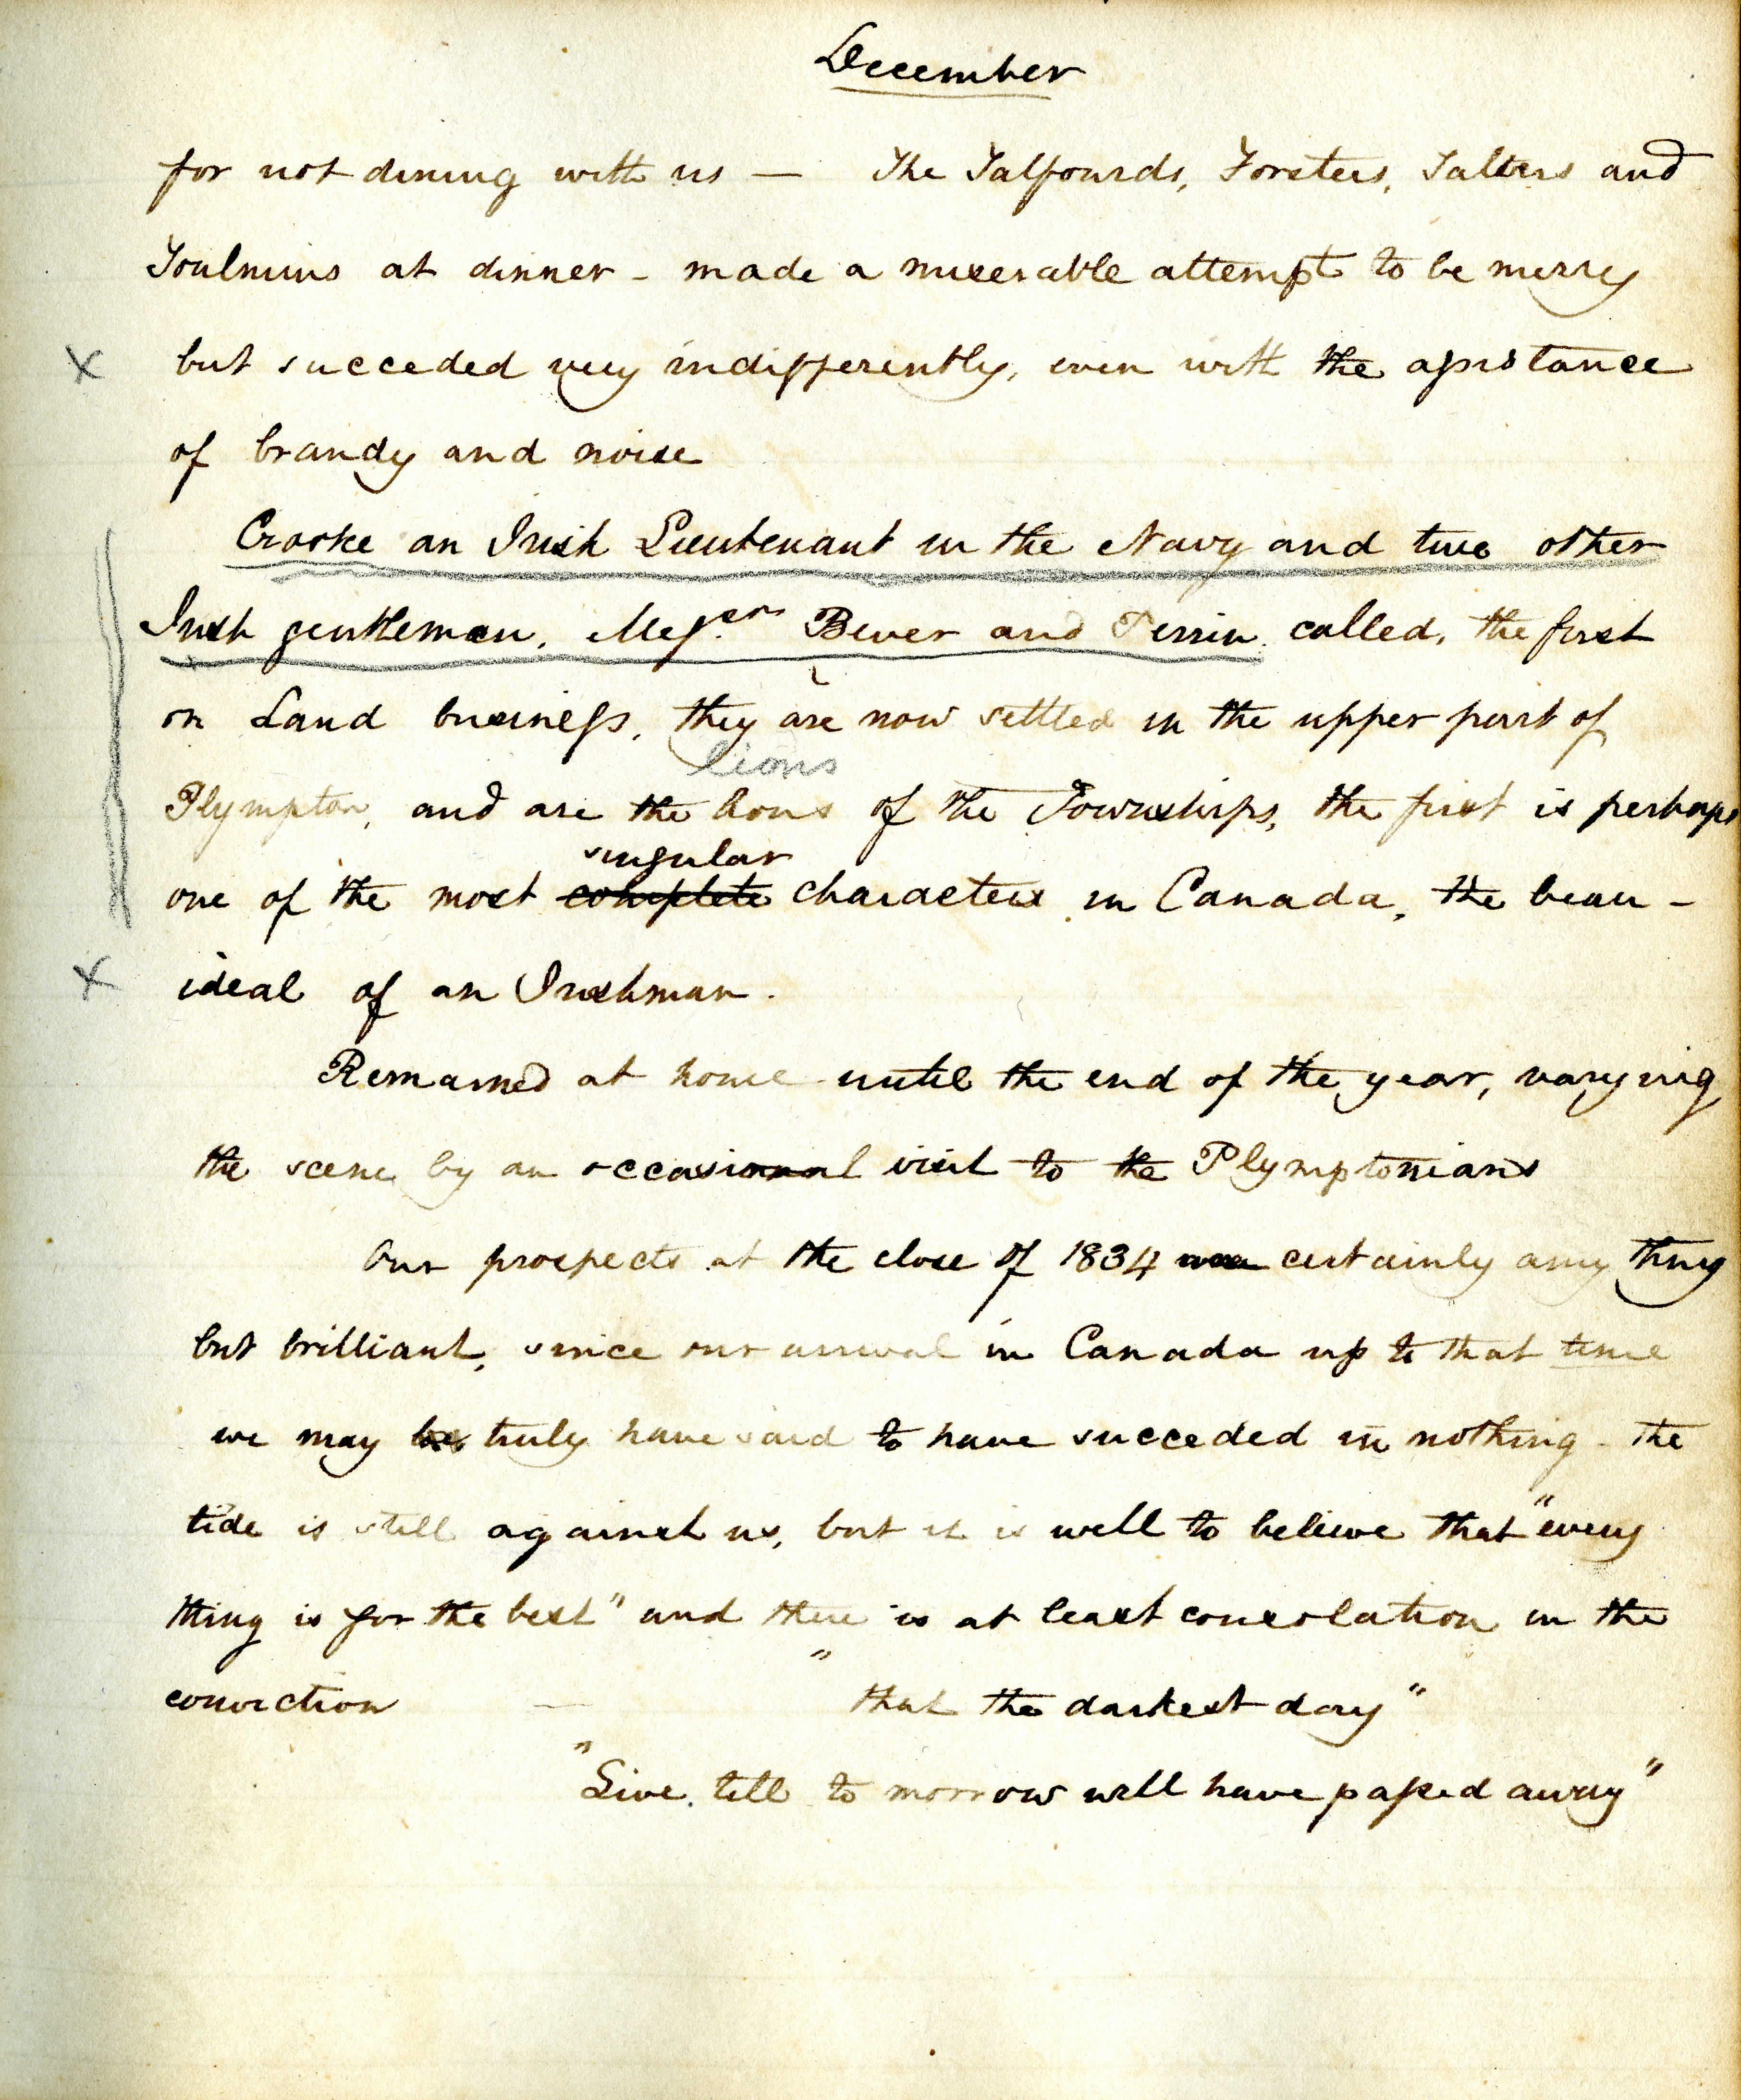 December
for not dining with us — The Talfourds, Forsters, Salters and
Toulmins at dinner - made a miserable attempt to be merry
x but succeded very indifferently, even with the assistance
of brandy and noise
Crooke an Irish Lieutenant in the Navy and two other
Irish gentlemen, Messrs Bever and Perrin called, the first
on Land business, they are now settled in the upper part of
lions
Plympton, and are the lions of the Townships, the first is perhaps
singular
one of the most complete characters in Canada, the beau -
x ideal of an Irishman.
Remained at home until the end of the year, varying
the scene by an occasional visit to the Plymptonians
Our prospects at the close of 1834 were certainly any thing
but brilliant, since our arrival in Canada up to that time
we may truly have said to have succeded in nothing - the
tide is still against us, but it is well to believe that "every
thing is for the best" and there is at least consolation in the
conviction — "that the darkest day"
"Live till to morrow will have passed away"